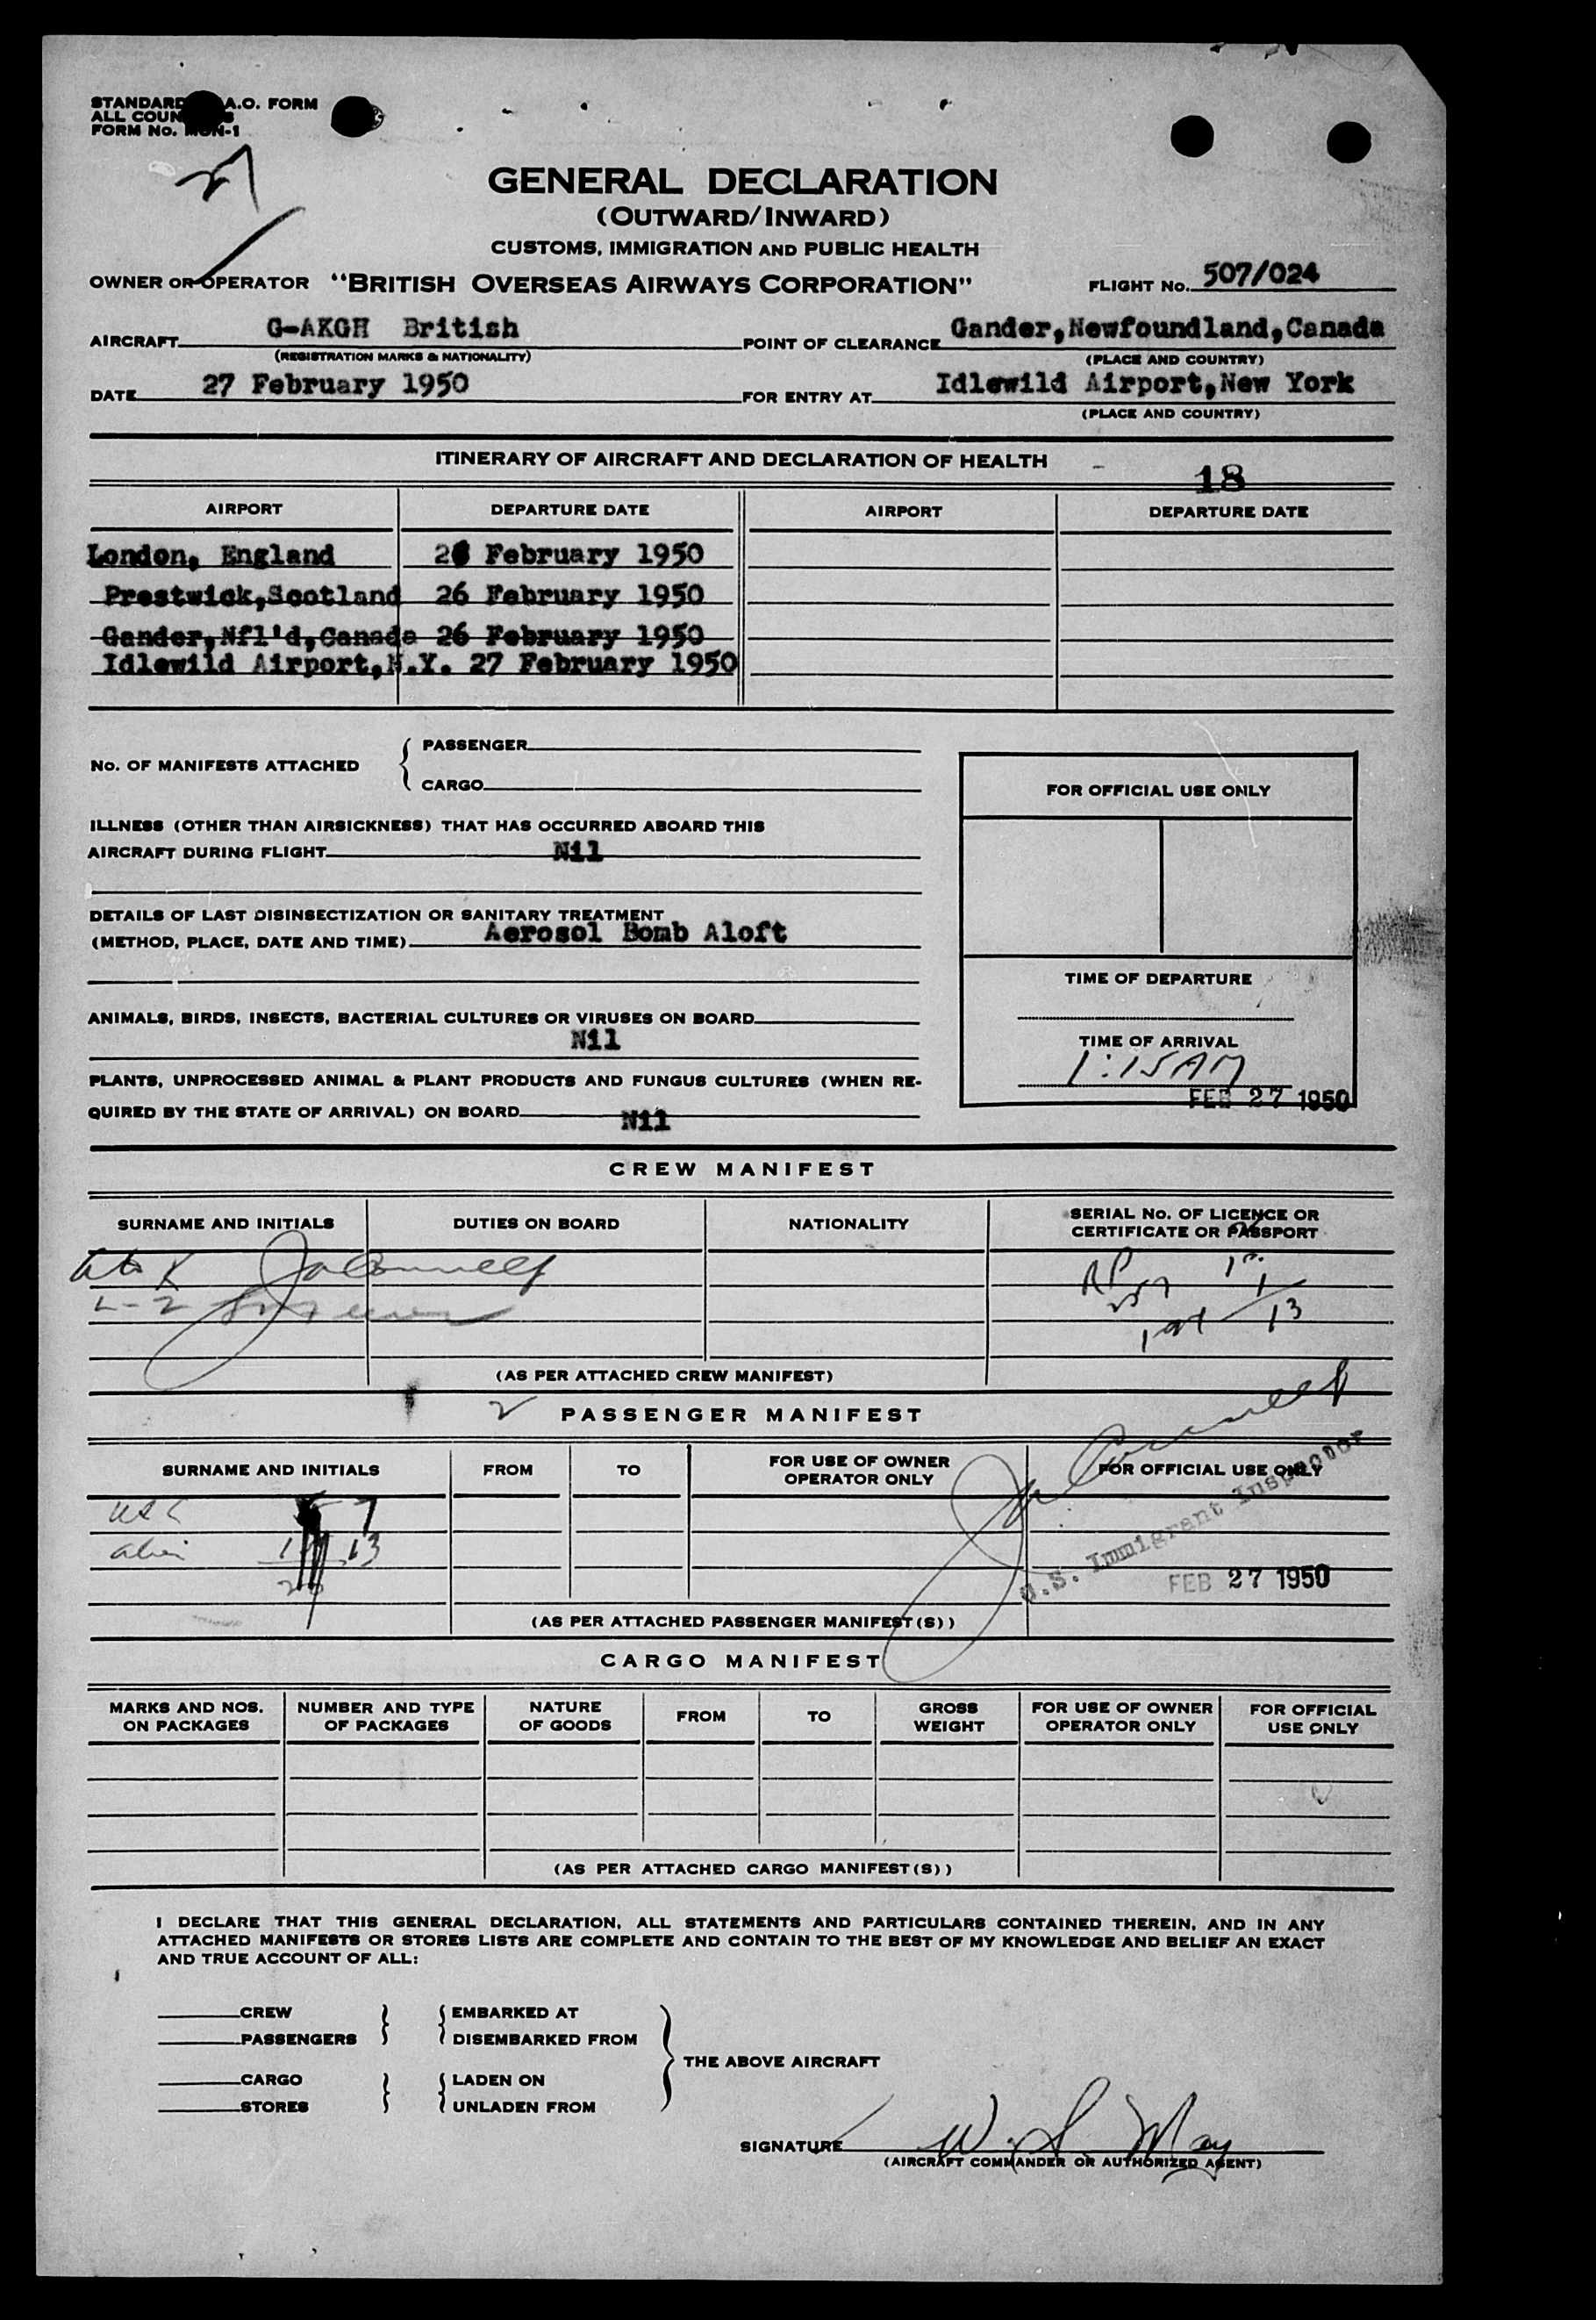 STANDARD A.O. FORM
ALL COUN S
FORM No. -1
27
GENERAL DECLARATION
(OUTWARD/INWARD)
CUSTOMS, IMMIGRATION AND PUBLIC HEALTH
OWNER OR OPERATOR "BRITISH OVERSEAS AIRWAYS CORPORATION" FLIGHT No. 507/024
AIRCRAFT G-AKGH British POINT OF CLEARANCE Gander,Newfoundland,Canada
(REGISTRATION MARKS & NATIONALITY) (PLACE AND COUNTRY)
DATE 27 February 1950 FOR ENTRY AT Idlewild Airport,New York
(PLACE AND COUNTRY)
ITINERARY OF AIRCRAFT AND DECLARATION OF HEALTH
18
AIRPORT DEPARTURE DATE AIRPORT DEPARTURE DATE
London, England 26 February 1950
Prestwick,Scotland 26 February 1950
Gander,Nfl'd,Canada 26 February 1950
Idlewild Airport,N.Y. 27 February 1950
No. OF MANIFESTS ATTACHED { PASSENGER
CARGO
FOR OFFICIAL USE ONLY
ILLNESS (OTHER THAN AIRSICKNESS) THAT HAS OCCURRED ABOARD THIS
AIRCRAFT DURING FLIGHT Nil
DETAILS OF LAST DISINSECTIZATION OR SANITARY TREATMENT
(METHOD, PLACE, DATE AND TIME) Aerosol Bomb Aloft
TIME OF DEPARTURE
ANIMALS, BIRDS, INSECTS, BACTERIAL CULTURES OR VIRUSES ON BOARD
Nil
TIME OF ARRIVAL
1:15AM
FEB 27 1950
PLANTS, UNPROCESSED ANIMAL & PLANT PRODUCTS AND FUNGUS CULTURES (WHEN RE-
QUIRED BY THE STATE OF ARRIVAL) ON BOARD Nil
CREW MANIFEST
SURNAME AND INITIALS DUTIES ON BOARD NATIONALITY SERIAL No. OF LICENCE OR
CERTIFICATE OR PASSPORT
(AS PER ATTACHED CREW MANIFEST)
PASSENGER MANIFEST
SURNAME AND INITIALS FROM TO FOR USE OF OWNER
OPERATOR ONLY FOR OFFICIAL USE ONLY
7
13
U.S. Immigrant Inspector
FEB 27 1950
(AS PER ATTACHED PASSENGER MANIFEST(S))
CARGO MANIFEST
MARKS AND NOS.
ON PACKAGES NUMBER AND TYPE
OF PACKAGES NATURE
OF GOODS FROM TO GROSS
WEIGHT FOR USE OF OWNER
OPERATOR ONLY FOR OFFICIAL
USE ONLY
(AS PER ATTACHED CARGO MANIFEST(S))
I DECLARE THAT THIS GENERAL DECLARATION, ALL STATEMENTS AND PARTICULARS CONTAINED THEREIN, AND IN ANY
ATTACHED MANIFESTS OR STORES LISTS ARE COMPLETE AND CONTAIN TO THE BEST OF MY KNOWLEDGE AND BELIEF AN EXACT
AND TRUE ACCOUNT OF ALL:
CREW EMBARKED AT
PASSENGERS DISEMBARKED FROM
THE ABOVE AIRCRAFT
CARGO LADEN ON
STORES UNLADEN FROM
SIGNATURE W. S. May
(AIRCRAFT COMMANDER OR AUTHORIZED AGENT)